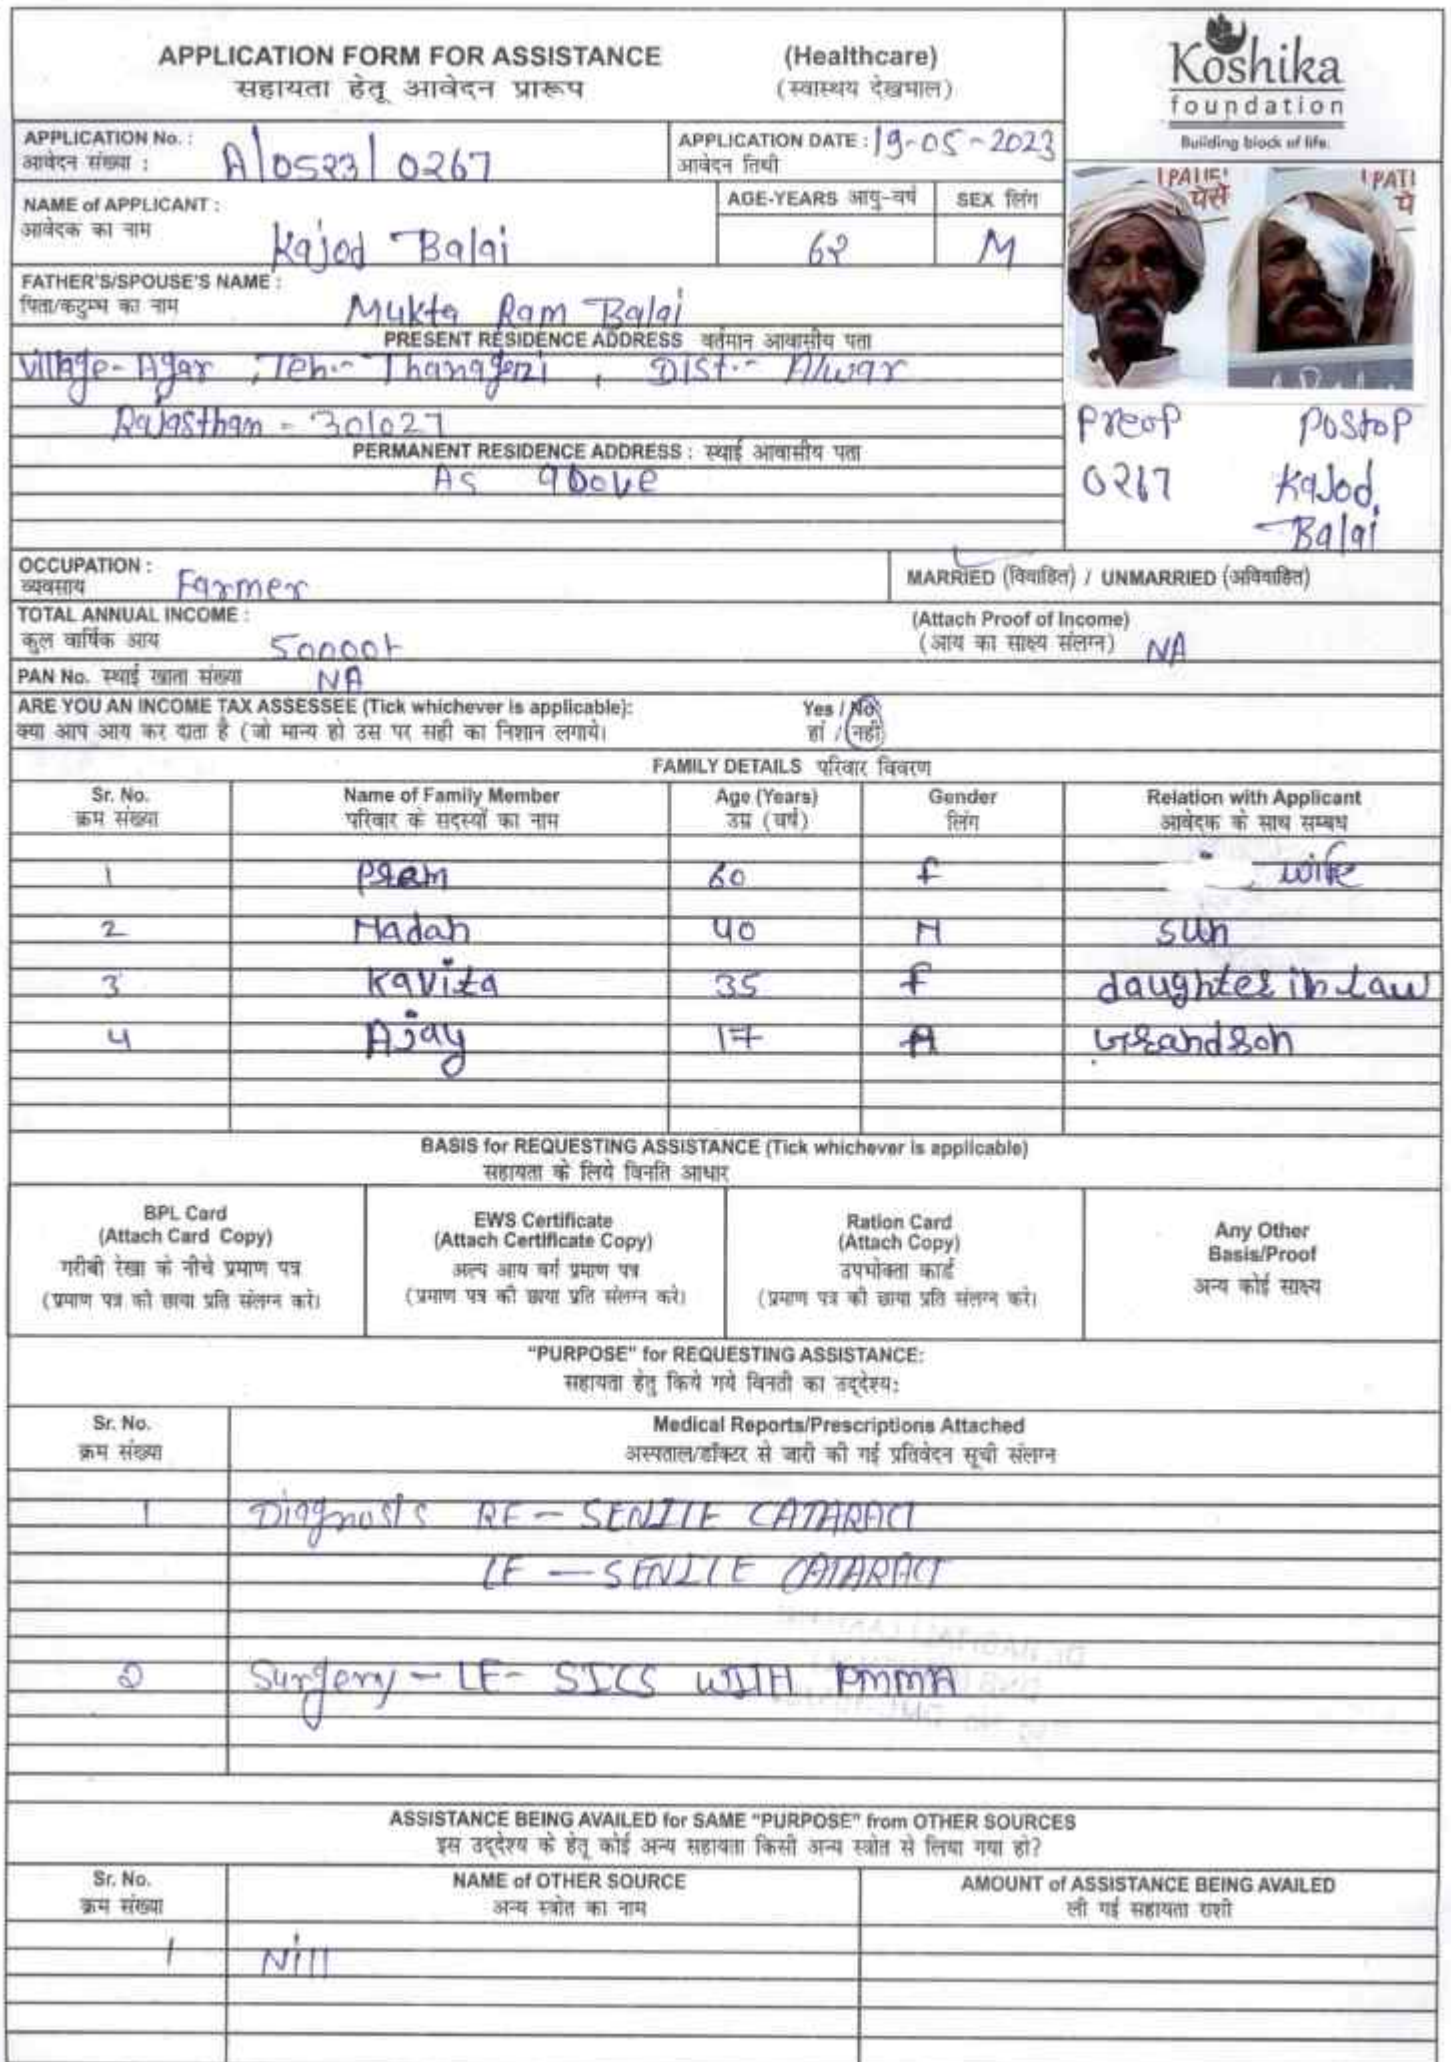 APPLICATION FORM FOR ASSISTANCE (Healthcare)
सहायता हेतू आवेदन प्रारूप (स्वास्थय देखभाल)
Koshika
foundation
Building block of life.
APPLICATION No. : A/0523/0267
आवेदन संख्या :
APPLICATION DATE : 19-05-2023
आवेदन तिथी
NAME of APPLICANT : Kajod Balai
आवेदक का नाम
AGE-YEARS आयु-वर्ष 62
SEX लिंग M
FATHER'S/SPOUSE'S NAME : Mukta Ram Balai
पिता/कटुम्भ का नाम
PRESENT RESIDENCE ADDRESS वर्तमान आवासीय पता
Village- Agar , Teh.- Thanagazi , Dist.- Alwar
Rajasthan - 301027
PERMANENT RESIDENCE ADDRESS : स्थाई आवासीय पता
As above
पैसे
Preop Postop
0267 Kajod
Balai
OCCUPATION : Farmer
व्यवसाय
MARRIED (विवाहित) / UNMARRIED (अविवाहित)
TOTAL ANNUAL INCOME :
कुल वार्षिक आय
(Attach Proof of Income)
(आय का साक्ष्य संलग्न) NA
PAN No. स्थाई खाता संख्या NA
ARE YOU AN INCOME TAX ASSESSEE (Tick whichever is applicable): Yes / No
क्या आप आय कर दाता है (जो मान्य हो उस पर सही का निशान लगाये। हां / नहीं
FAMILY DETAILS परिवार विवरण
Sr. No. Name of Family Member Age (Years) Gender Relation with Applicant
क्रम संख्या परिवार के सदस्यों का नाम उम्र (वर्ष) लिंग आवेदक के साथ सम्बध
1 Prem 60 F wife
2 Madan 40 M sun
3 Kavita 35 F daughter in law
4 Ajay 17 M Grandson
BASIS for REQUESTING ASSISTANCE (Tick whichever is applicable)
सहायता के लिये विनति आधार
BPL Card
(Attach Card Copy)
गरीबी रेखा के नीचे प्रमाण पत्र
(प्रमाण पत्र की छाया प्रति संलग्न करे।
EWS Certificate
(Attach Certificate Copy)
अल्प आय वर्ग प्रमाण पत्र
(प्रमाण पत्र की छाया प्रति संलग्न करे।
Ration Card
(Attach Copy)
उपभोक्ता कार्ड
(प्रमाण पत्र की छाया प्रति संलग्न करे।
Any Other
Basis/Proof
अन्य कोई साक्ष्य
"PURPOSE" for REQUESTING ASSISTANCE:
सहायता हेतु किये गये विनती का उद्देश्य:
Sr. No. Medical Reports/Prescriptions Attached
क्रम संख्या अस्पताल/डॉक्टर से जारी की गई प्रतिवेदन सूची संलग्न
1 Diagnosis RE - SENILE CATARACT
LE - SENILE CATARACT
2 Surgery - LE - SICS WITH PMMA
ASSISTANCE BEING AVAILED for SAME "PURPOSE" from OTHER SOURCES
इस उद्देश्य के हेतू कोई अन्य सहायता किसी अन्य स्त्रोत से लिया गया हो?
Sr. No. NAME of OTHER SOURCE AMOUNT of ASSISTANCE BEING AVAILED
क्रम संख्या अन्य स्त्रोत का नाम ली गई सहायता राशी
1 Nill